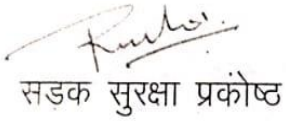 सड़क सुरक्षा प्रकोंष्ठ